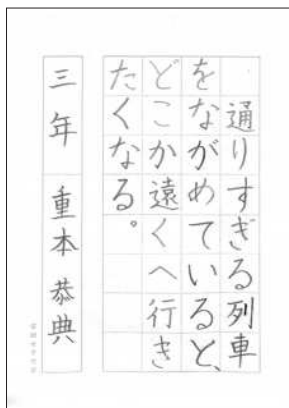 通りすぎる列車
をながめていると、
どこか遠くへ行き
たくなる。
三年 重本恭典